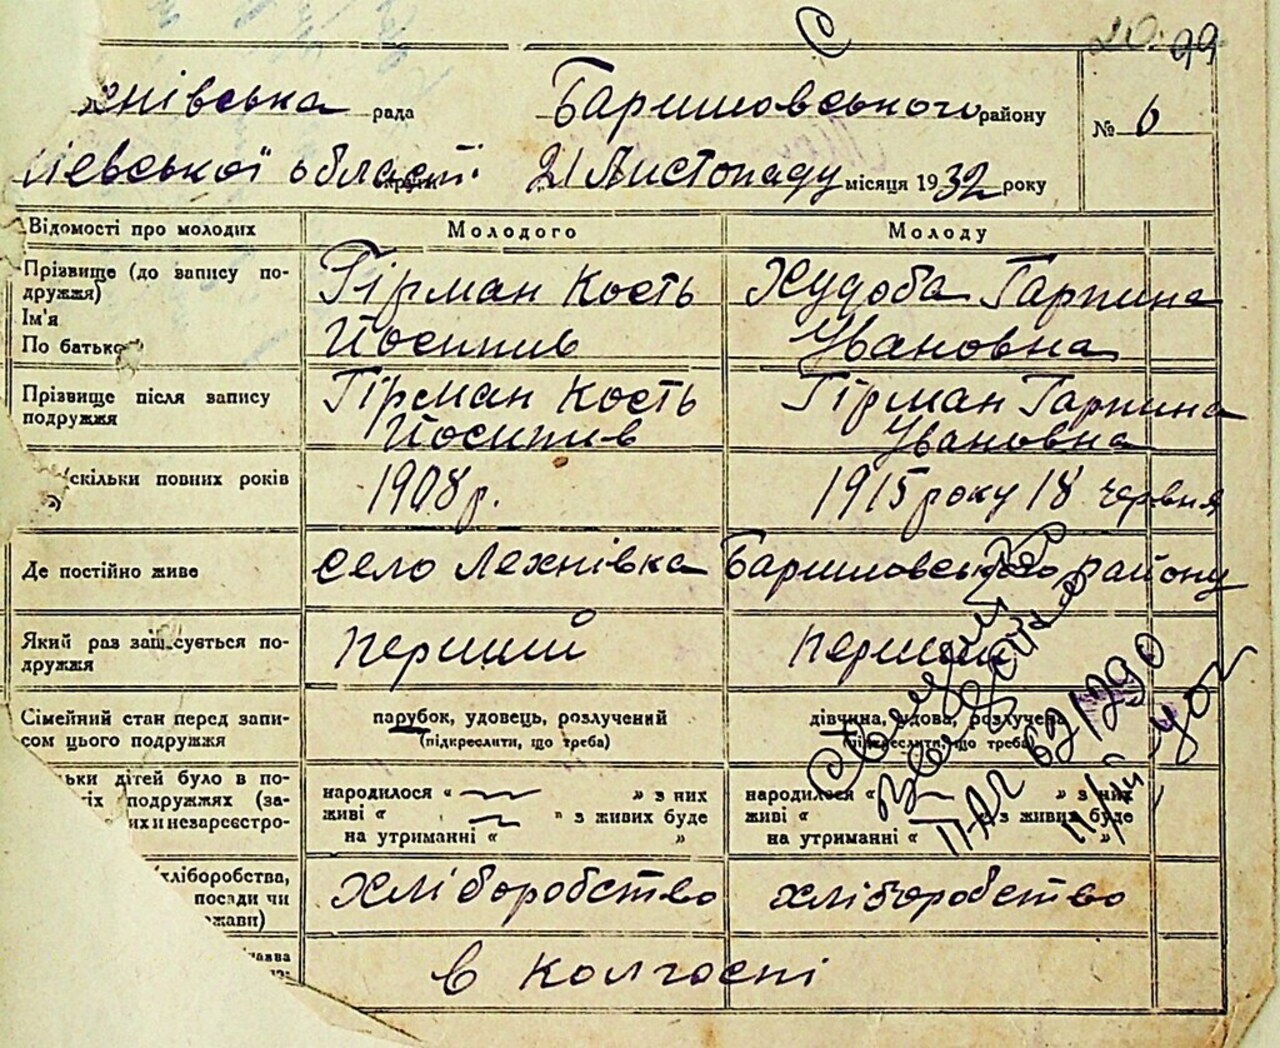 20. 99
хнівська рада Баришовського району № 6
иевської області округи 21 Листопаду місяця 1932 року
Відомості про молодих Молодого Молоду
Прізвище (до запису по-
дружжя)
Ім'я
По батькові
Гірман Кость Худоба Гарпина
Йосипив Увановна
Прізвище після запису
подружжя
Гірман Кость Гірман Гарпина
Йосипив Увановна
скільки повних років
1908 р. 1915 року 18 червня
Де постійно живе село Лехнівка Баришовського району
Який раз записується по-
дружжя
перший перший
Сімейний стан перед запи-
сом цього подружжя
парубок, удовець, розлучений дівчина, удова, розлучена
(підкреслити, що треба) (підкреслити, що треба)
ьки дітей було в по-
іх подружжях (за-
их и незареєстро-
народилося « » з них народилося « » з них
живі « » з живих буде живі « » з живих буде
на утриманні « » на утриманні « »
хліборобства,
посади чи
ржави)
хліборобство хліборобство
в колгоспі
II-АГ 621290